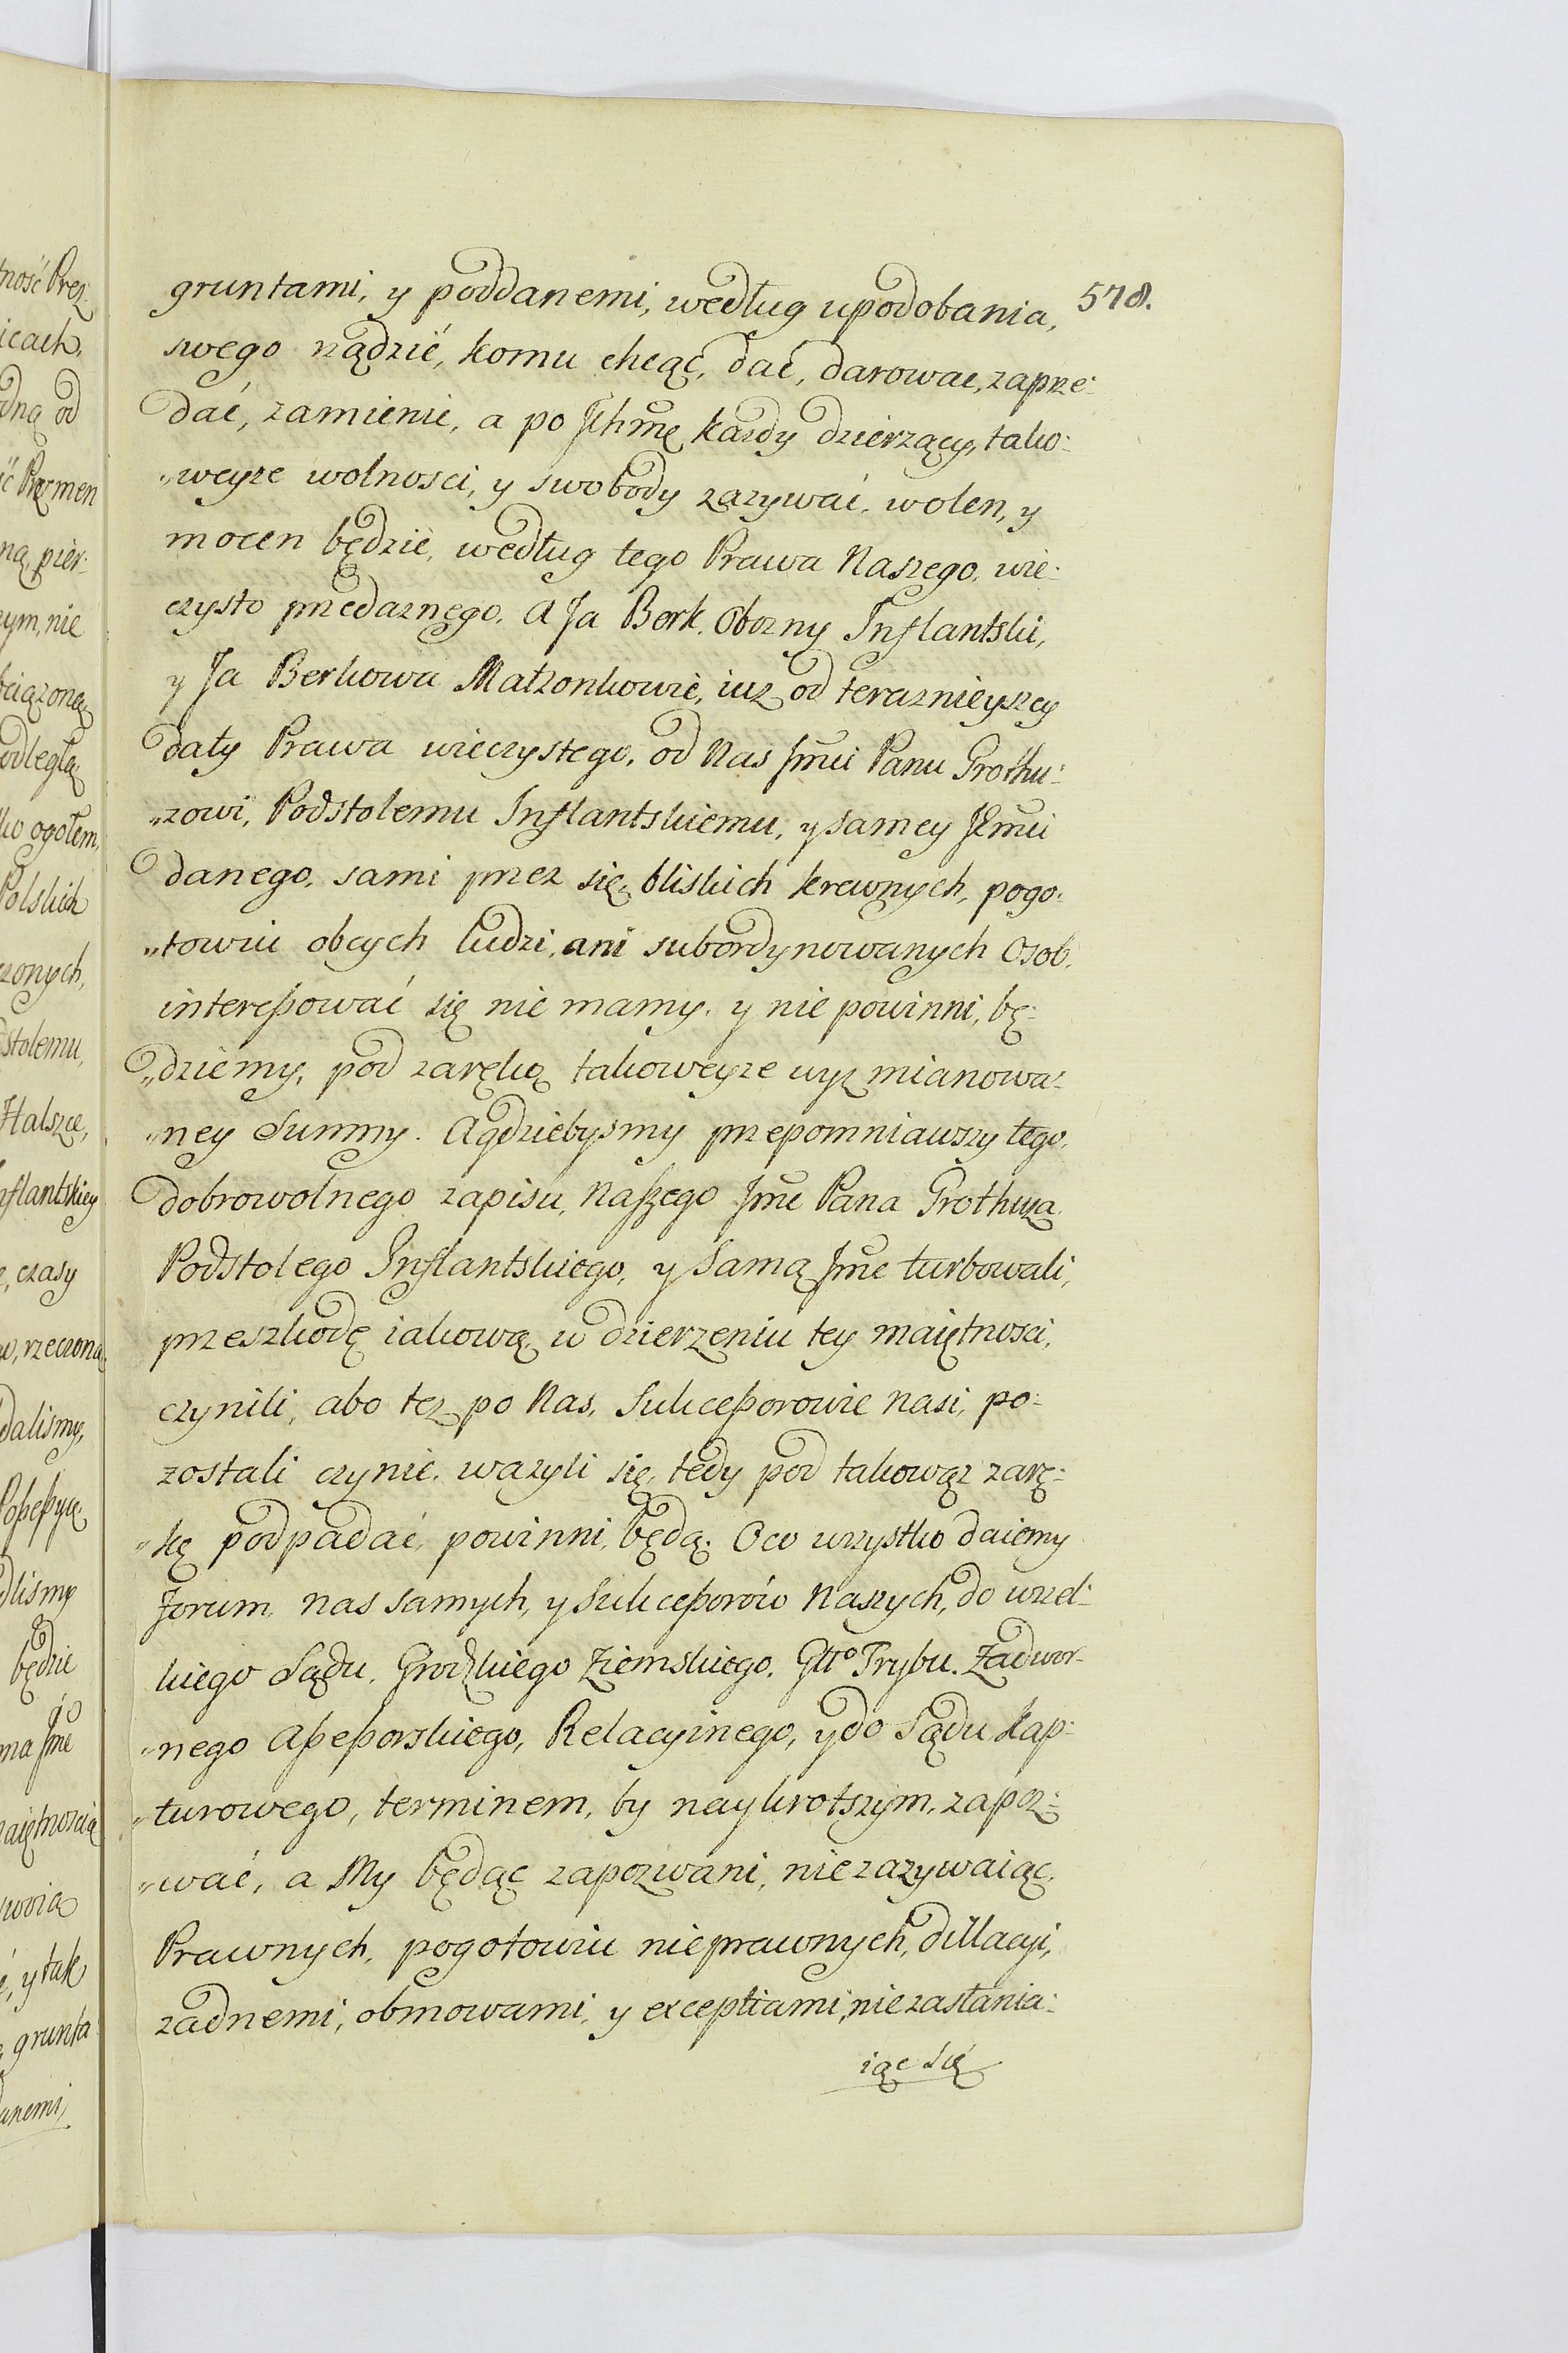 578.
gruntami, y poddanemi, według upodobania,
swego rządzić, komu chcąc, dać, darować, zaprze:
dać, zamienić, a po Ichmę każdy dzierzący, tako:
„weyże wolnosci, y swobody zazywać, wolen, y
mocen będzie, według tego Prawa Naszego, wie:
czysto przedaznego. A Ja Berk. Obozny Inflantski,
y Ja Berkowa Małzonkowie, iuz od teraznieyszey
daty Prawa wieczystego, od Nas Jmci Panu Grothu:
„zowi, Podstolemu Inflantskiemu, y samey Jeymci
danego, sami przez się, bliskich krewnych, pogo:
„towiu obcych ludzi, ani subordynowanych Osob,
interessować się nie mamy, y nie powinni, bę:
„dziemy, pod zaręką takoweyże wyż mianowa:
„ney Summy. A gdziebysmy przepomniawszy tego,
dobrowolnego zapisu, Naszego Jme Pana Grothuza,
Podstolego Inflantskiego, y samą Jme turbowali,
przeszkodę iakową, w dzierzeniu tey maiętnosci,
czynili, abo też po Nas, Sukcessorowie nasi, po:
zostali czynić, wazyli się, tedy pod takowąż zarę:
„kę podpadać, powinni, będą. O co wszystko daiemy
Forum, nas samych, y Sukcessorów Naszych, do wszel:
kiego Sądu, Grodzkiego Ziemskiego, Głł° Trybu. Zadwor:
„nego Assessorskiego, Relacyinego, y do Sądu Kap:
„turowego, terminem, by naykrotszym, zapoz:
„wać, a My będąc zapozwani, nie zazywaiąc,
Prawnych, pogotowiu nieprawnych, dillacyi,
zadnemi, obmowami, y exceptiami, nie zasłania:
iąc się